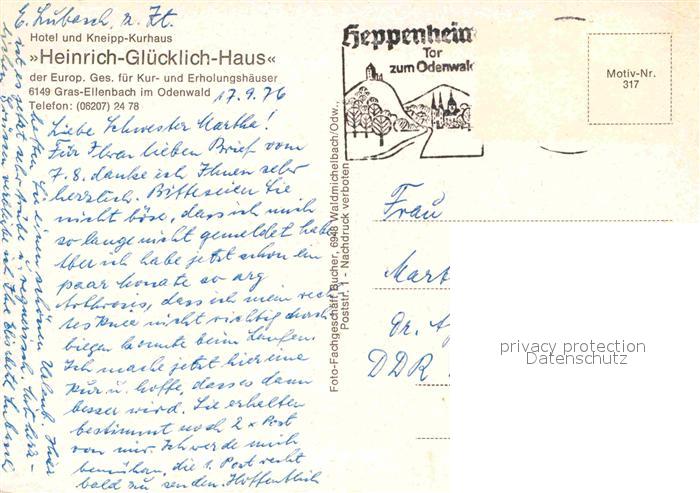 E. Lubasch, z. Zt.
Hotel und Kneipp-Kurhaus
»Heinrich-Glücklich-Haus«
der Europ. Ges. für Kur- und Erholungshäuser
6149 Gras-Ellenbach im Odenwald
Telefon: (06207) 24 78
17.9.76
Liebe Schwester Martha!
Für Ihren lieben Brief vom
7.8. danke ich Ihnen sehr
herzlich. Bitte seien Sie
nicht böse, dass ich mich
so lange nicht gemeldet habe
Aber ich habe jetzt schon ein
paar Monate so arg
Arthrosis, dass ich mein rech
tes Knie nicht richtig durch
biegen konnte beim Laufen.
Ich mache jetzt hier eine
Kur u. hoffe, dass es dann
besser wird. Sie erhalten
bestimmt noch 2 x Post
von mir. Ich werde mich
bemühen, die 1. Post recht
bald zu senden. Hoffentlich
hatten Sie einen schönen Urlaub. Hier
ist es jetzt sehr trübe u. regnerisch. Mit herz-
lichen Grüssen verbleibe ich Ihre Elisabeth Lubasch
Foto-Fachgeschäft Bucher, 6948 Waldmichelbach/Odw.
Poststr. 1 - Nachdruck verboten
Heppenheim
Tor
zum Odenwald
Motiv-Nr.
317
Frau
Mart
Dr. A
DDR
privacy protection
Datenschutz